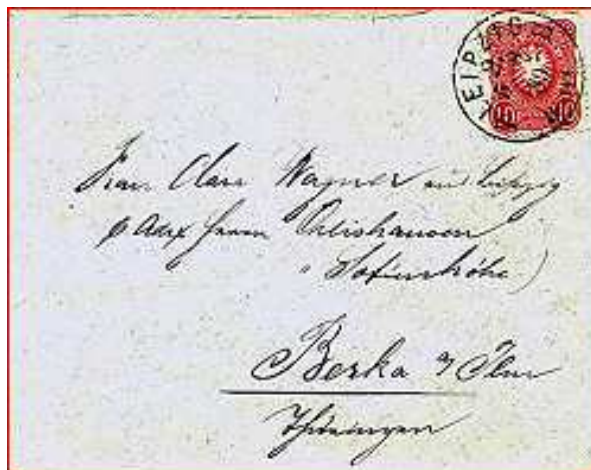 LEIPZIG
10 10
Frau Clara Wagner aus Leipzig
p Adr Herrn
Sofienhöhe)
Berka a/ Ilm
Thüringen